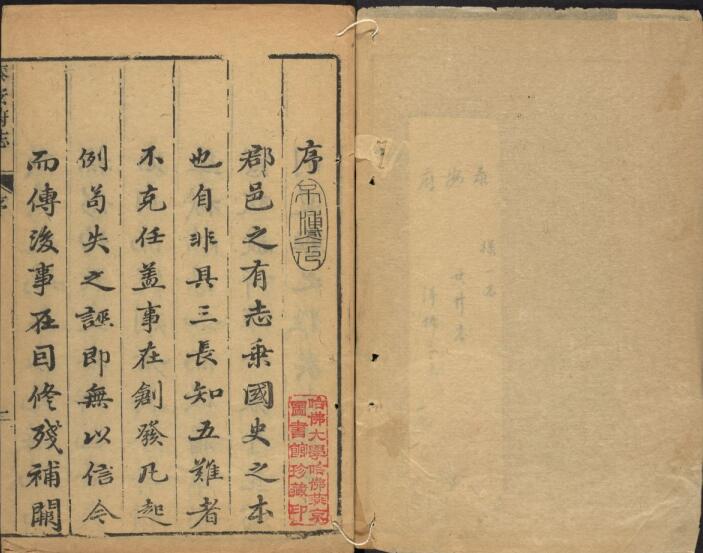 序
郡邑之有志乘國史之本
也自非具三長知五難者
不克任盖事在創發凡起
例苟失之誣即無以信今
而傳後事在因修殘補闕
哈佛大學哈佛燕京
圖書館珍藏印
泰安府志
序